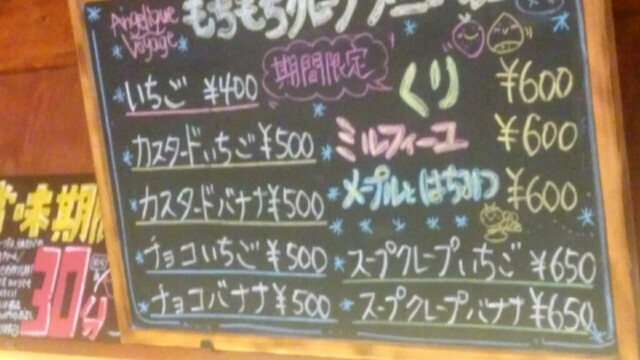 Angelique Voyage
もちもちクレープメニュー
いちご ¥400
カスタードいちご ¥500
カスタードバナナ ¥500
チョコいちご ¥500
チョコバナナ ¥500
期間限定
くり ¥600
ミルフィーユ ¥600
メープルとはちみつ ¥600
スープクレープいちご ¥650
スープクレープバナナ ¥650
賞味期限
30分